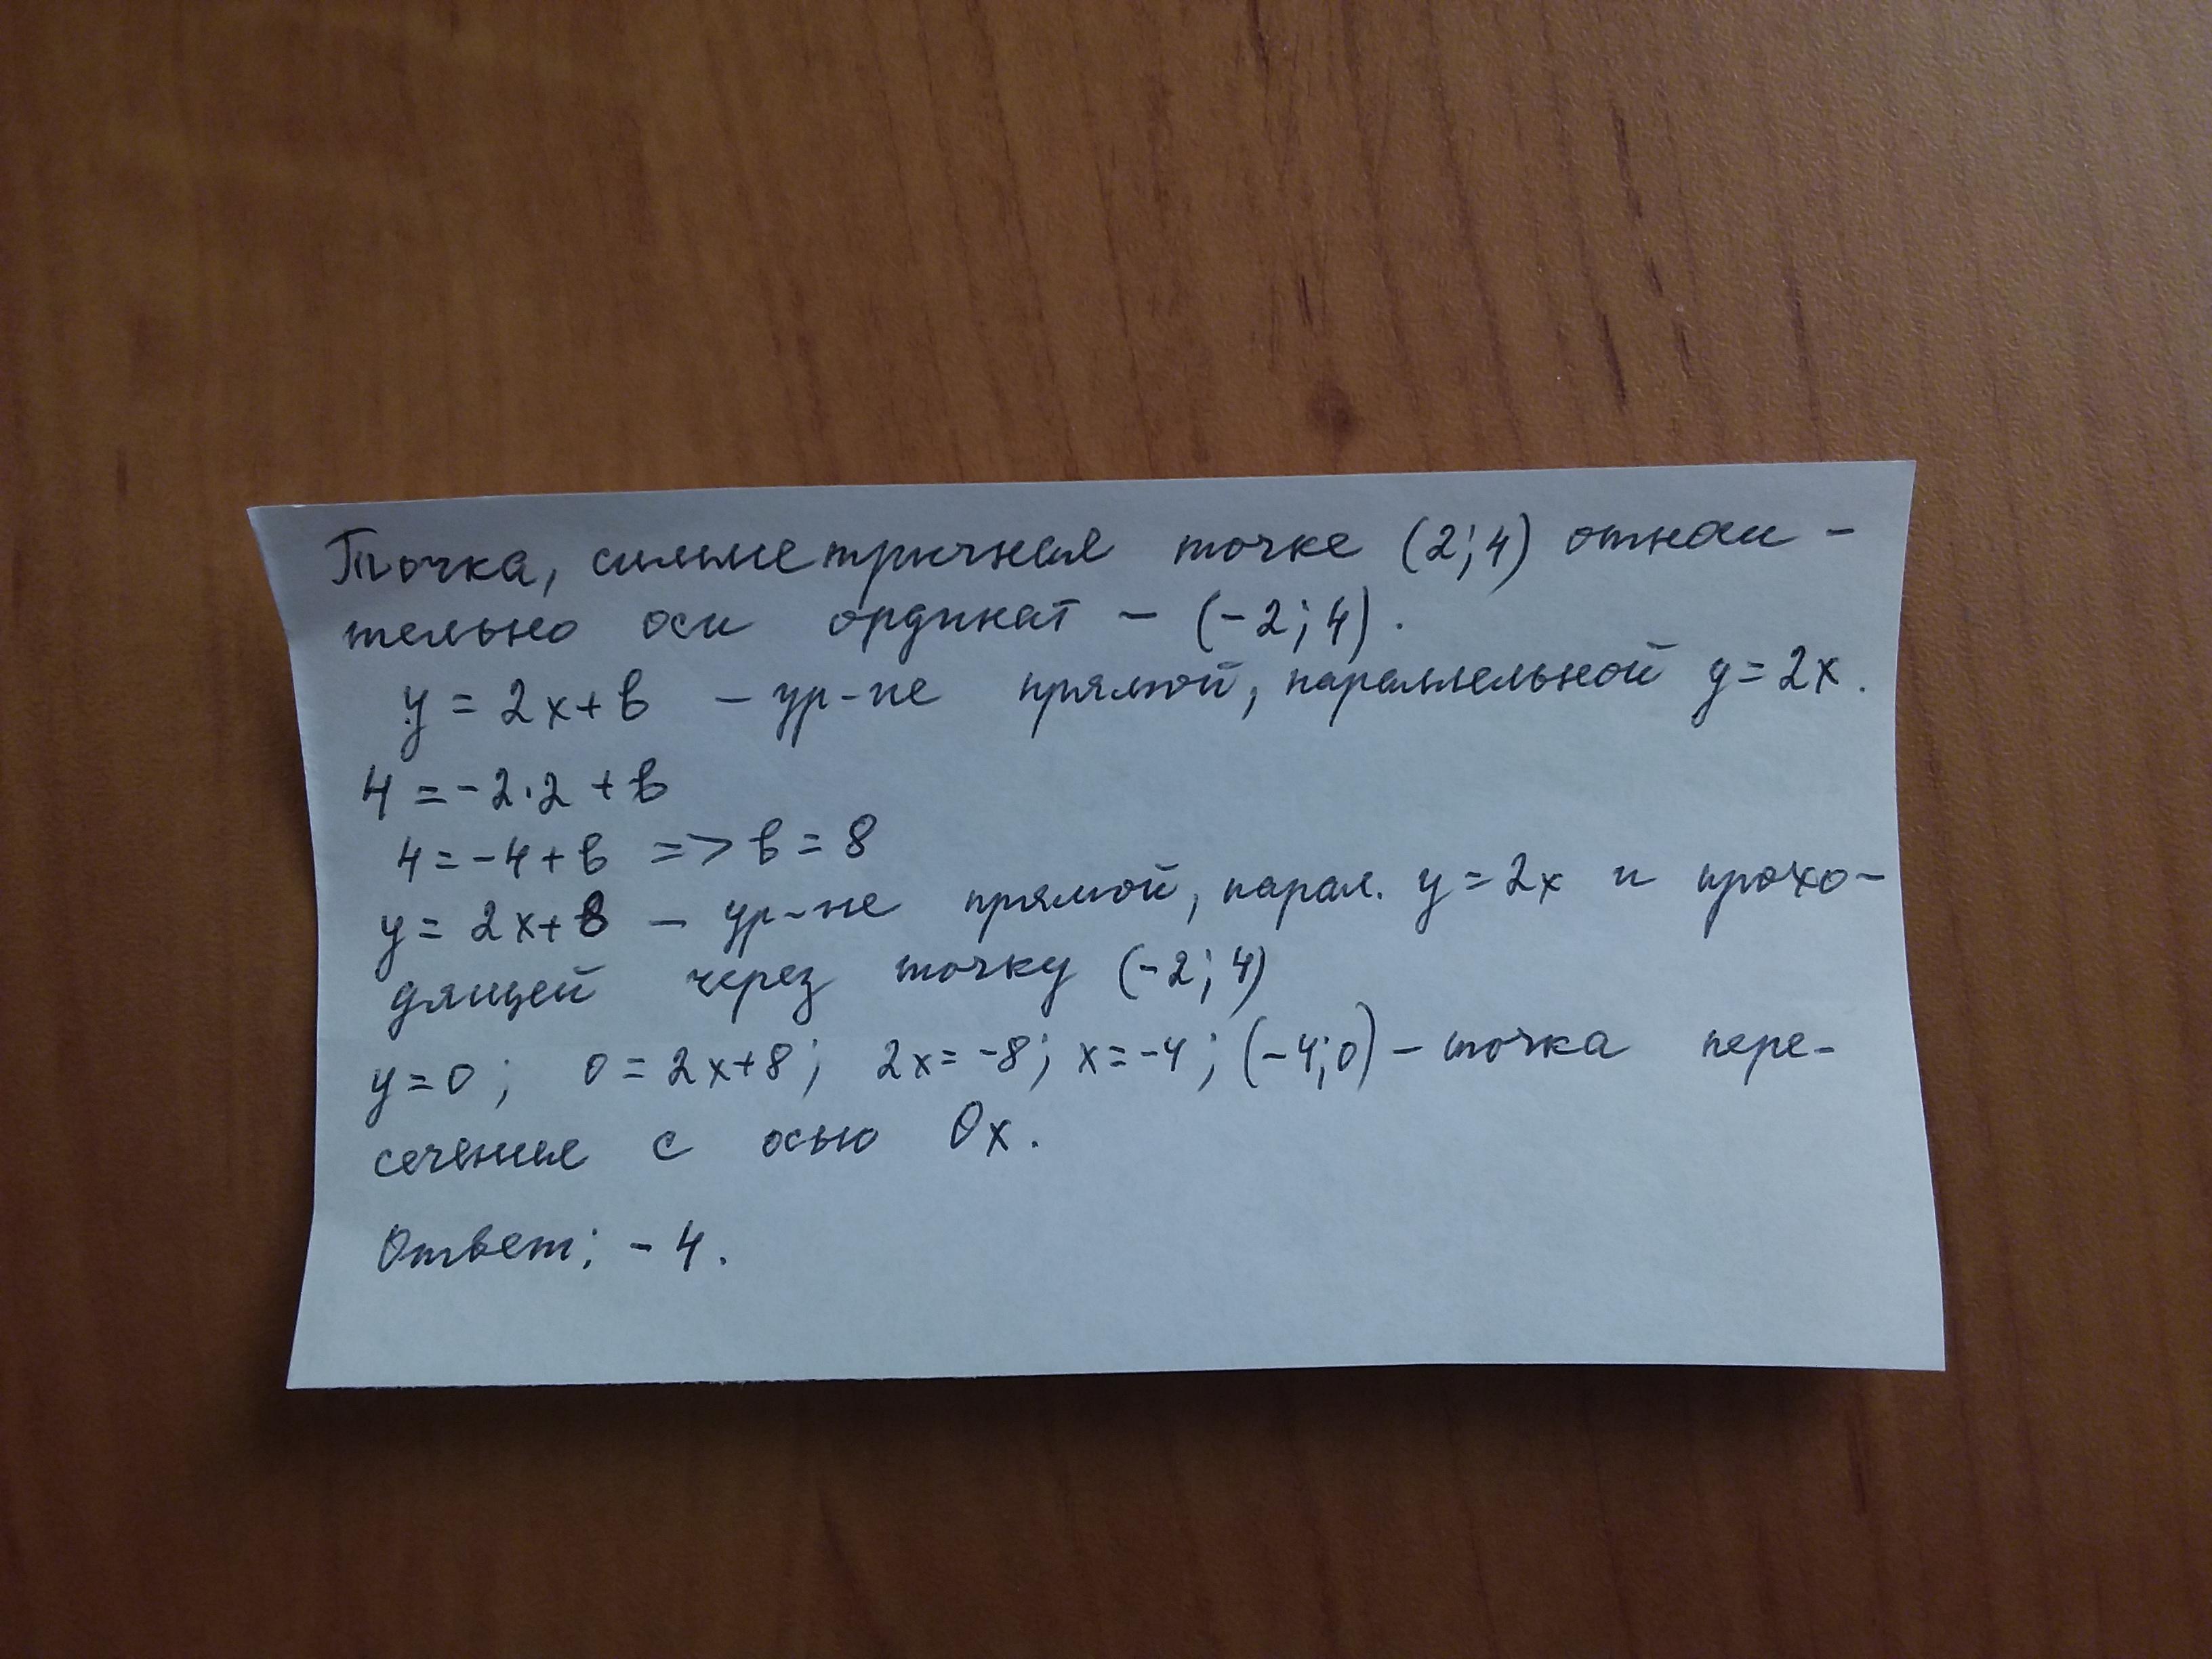 Точка, симметричная точке (2; 4) относи-
тельно оси ординат - (-2; 4).
y = 2x + b - ур-ие прямой, параллельной y = 2x.
4 = -2·2 + b
4 = -4 + b => b = 8
y = 2x+8 - ур-ие прямой, парал. y = 2x и прохо-
дящей через точку (-2; 4)
y = 0; 0 = 2x+8; 2x = -8; x = -4; (-4; 0) - точка пере-
сечения с осью Ox.
Ответ: -4.